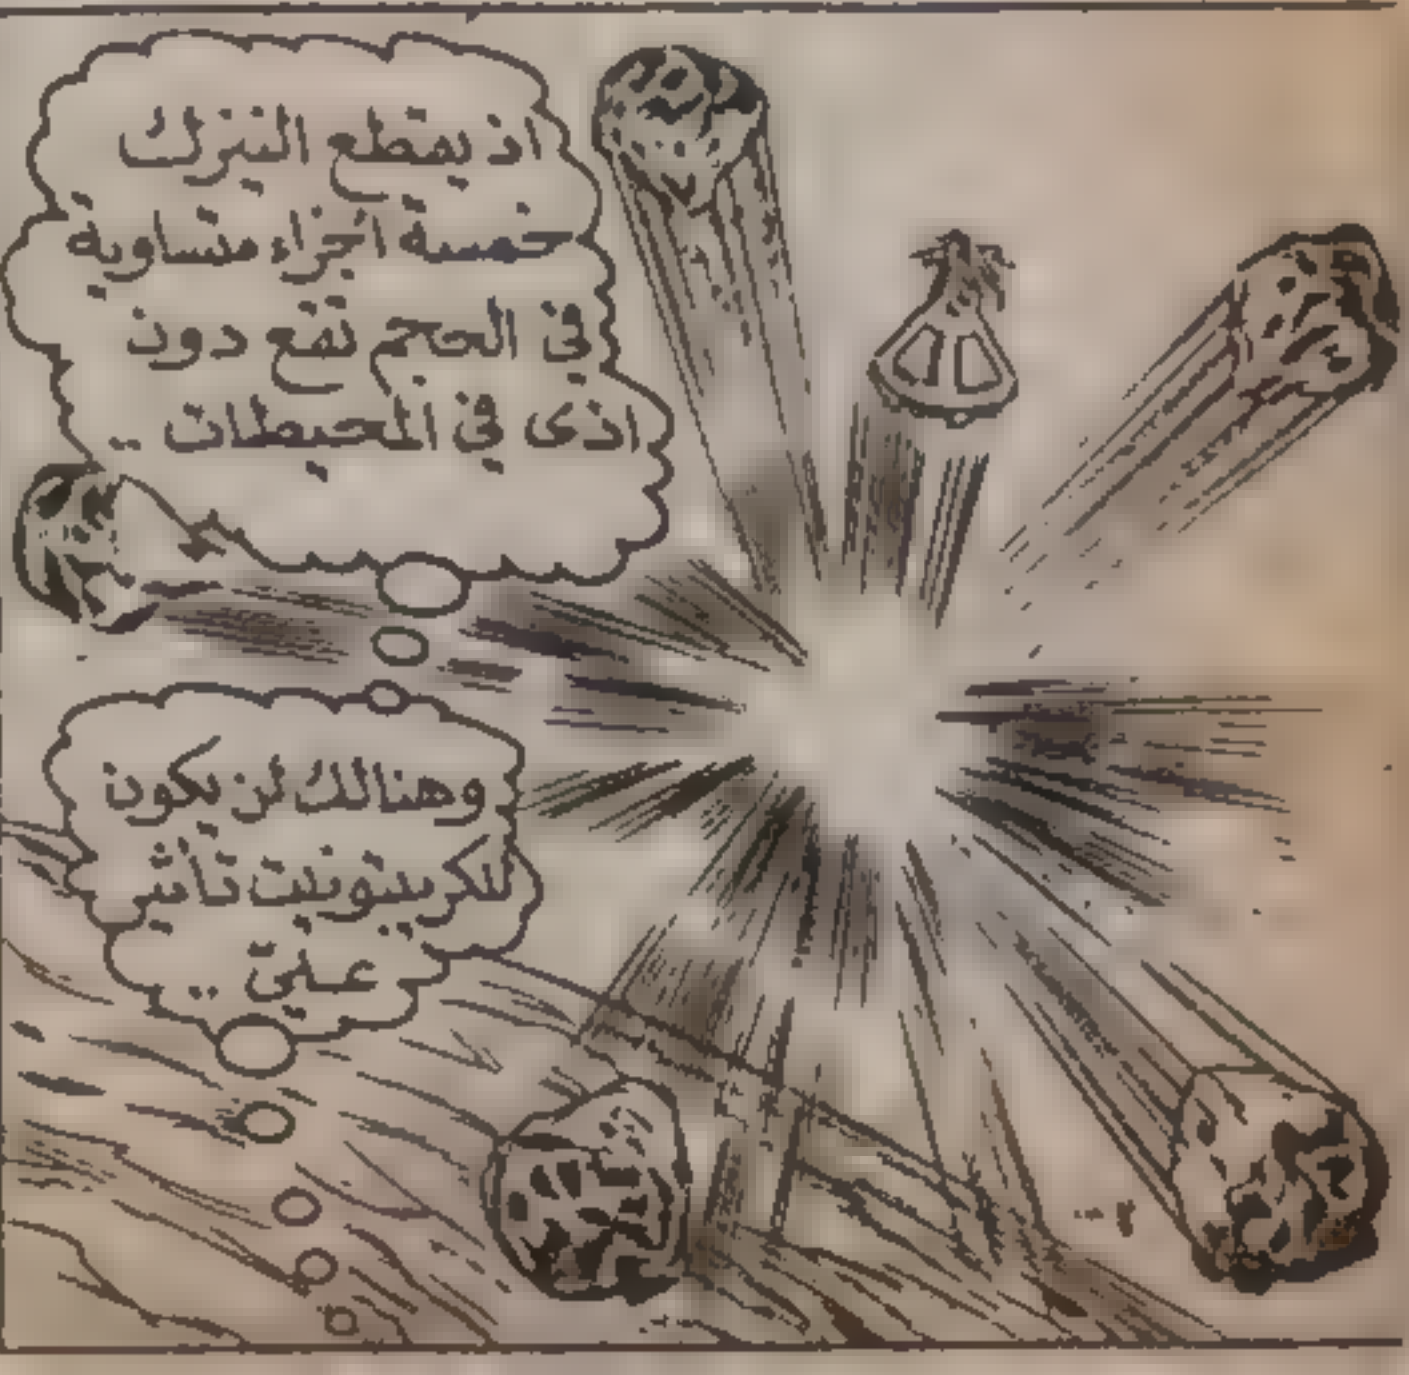 اذ يقطع النيزك
خمسة اجزاء متساوية
في الحجم تقع دون
اذى في المحيطات ..
وهنالك لن يكون
للكريبتونيت تأثير
عليّ ..